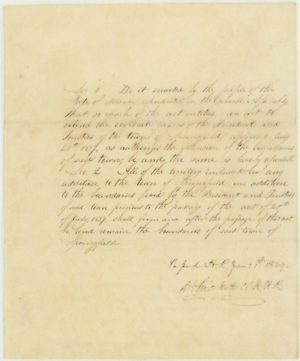 Sec 1 Be it enacted by the people of the
State of Illinois represented in the General Assembly
that so much of the act entitled an act to
the corporate powers of the President and
Trustees of the town of Springfield approved July
20th 1837, as authorizes the extension of the boundaries
of said town, be and the same is hereby repealed
Sec 2. All of the territory included in any
addition to the town of Springfield in addition
to the boundaries fixed by the President and Trustees
of said town previous to the passage of the act of 20th
of July 1837 shall from and after the passage of this act
be and remain the boundaries of said town of
Springfield.
H.R. Jany 1839
H. R.